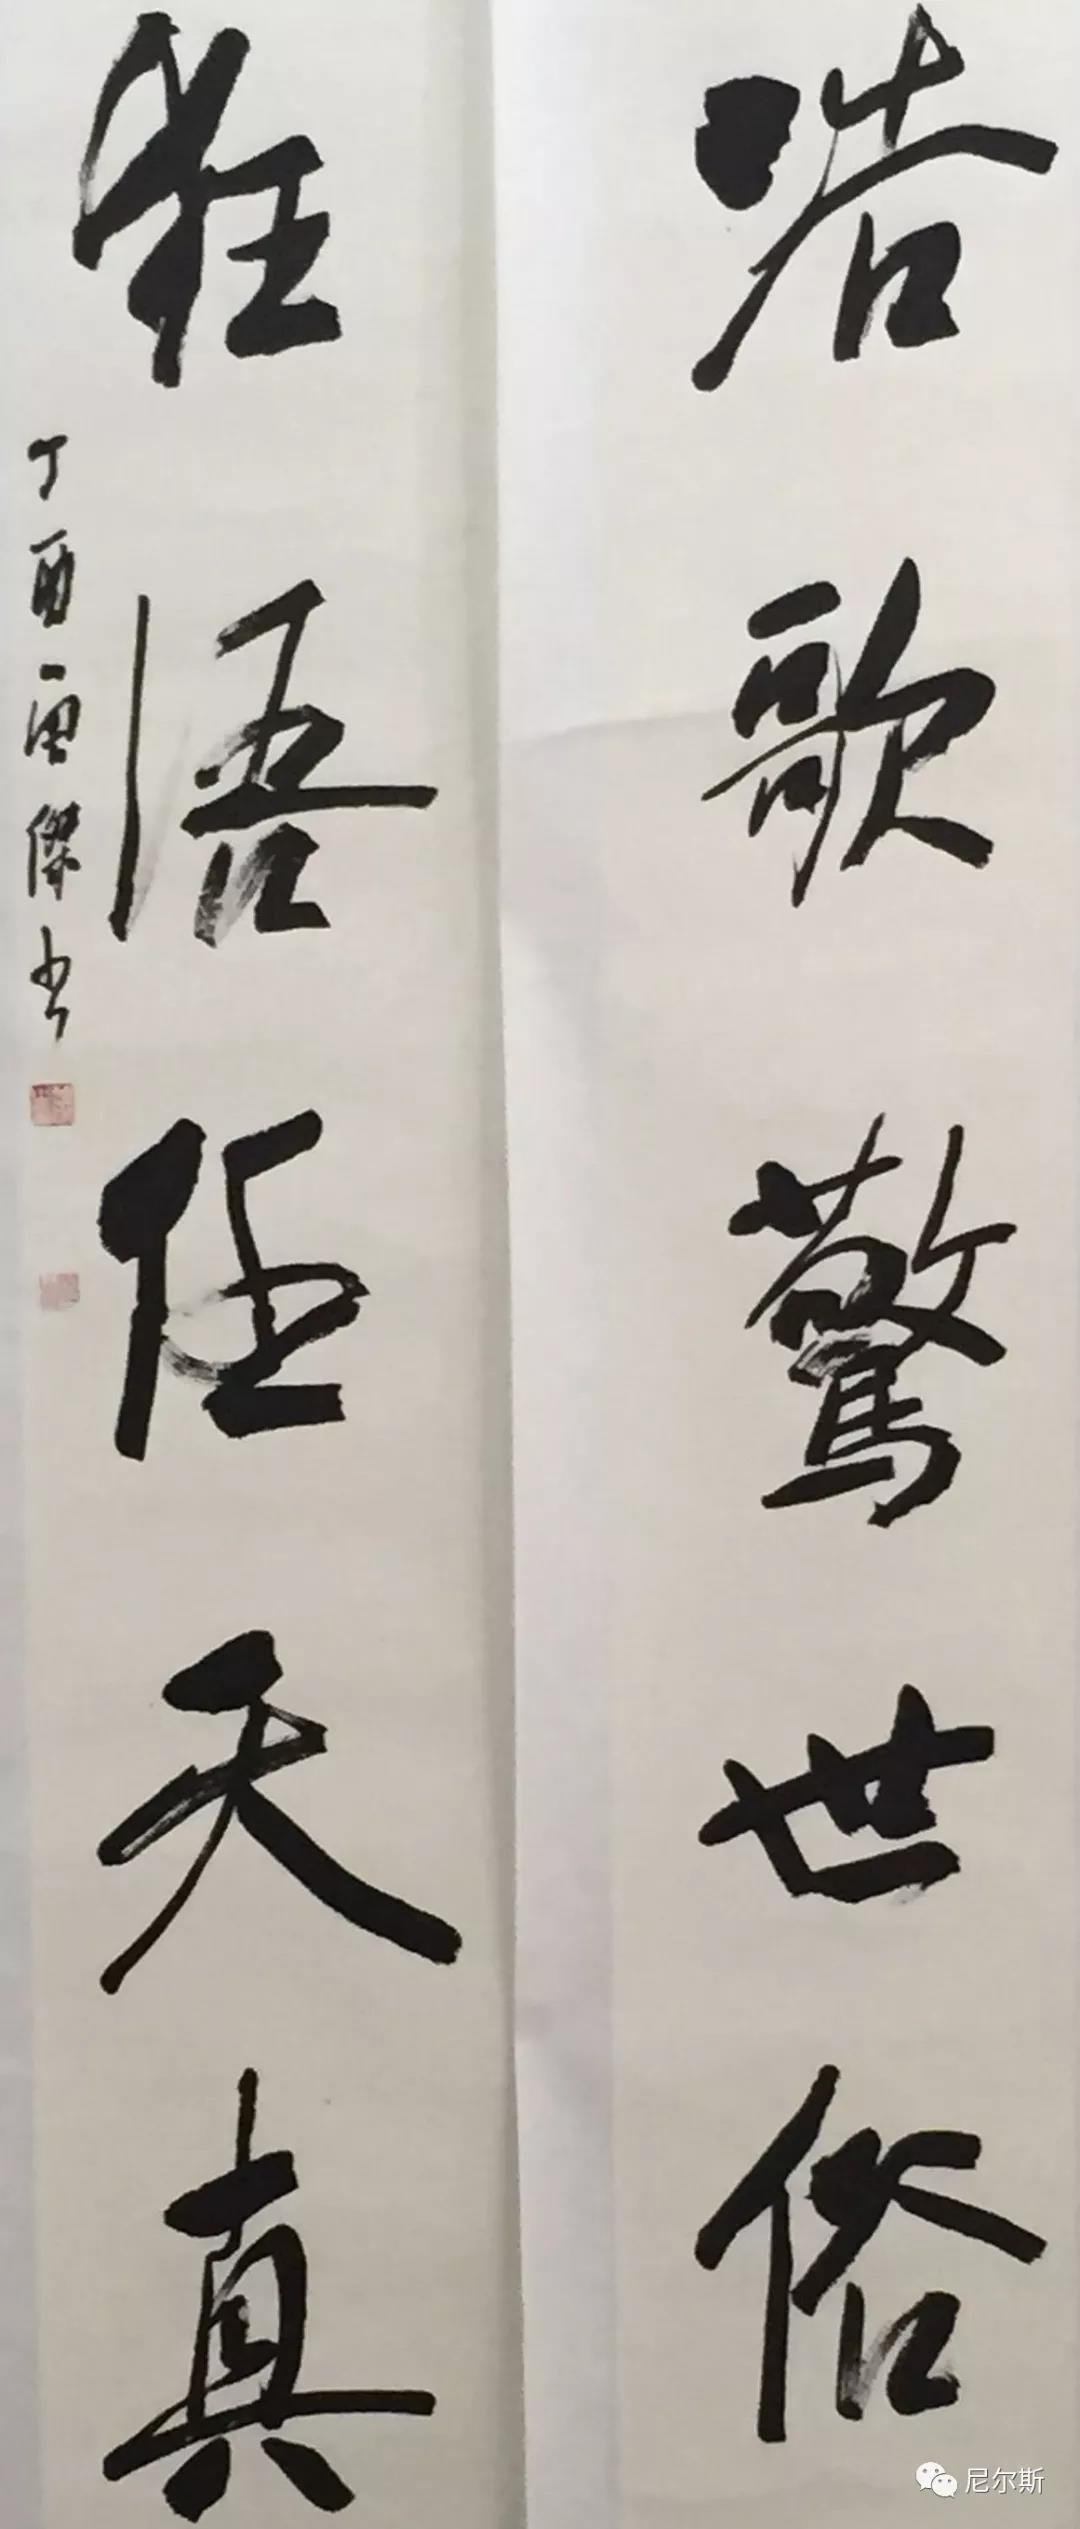 浩歌驚世俗
狂語任天真
丁酉雪傑书
尼尔斯